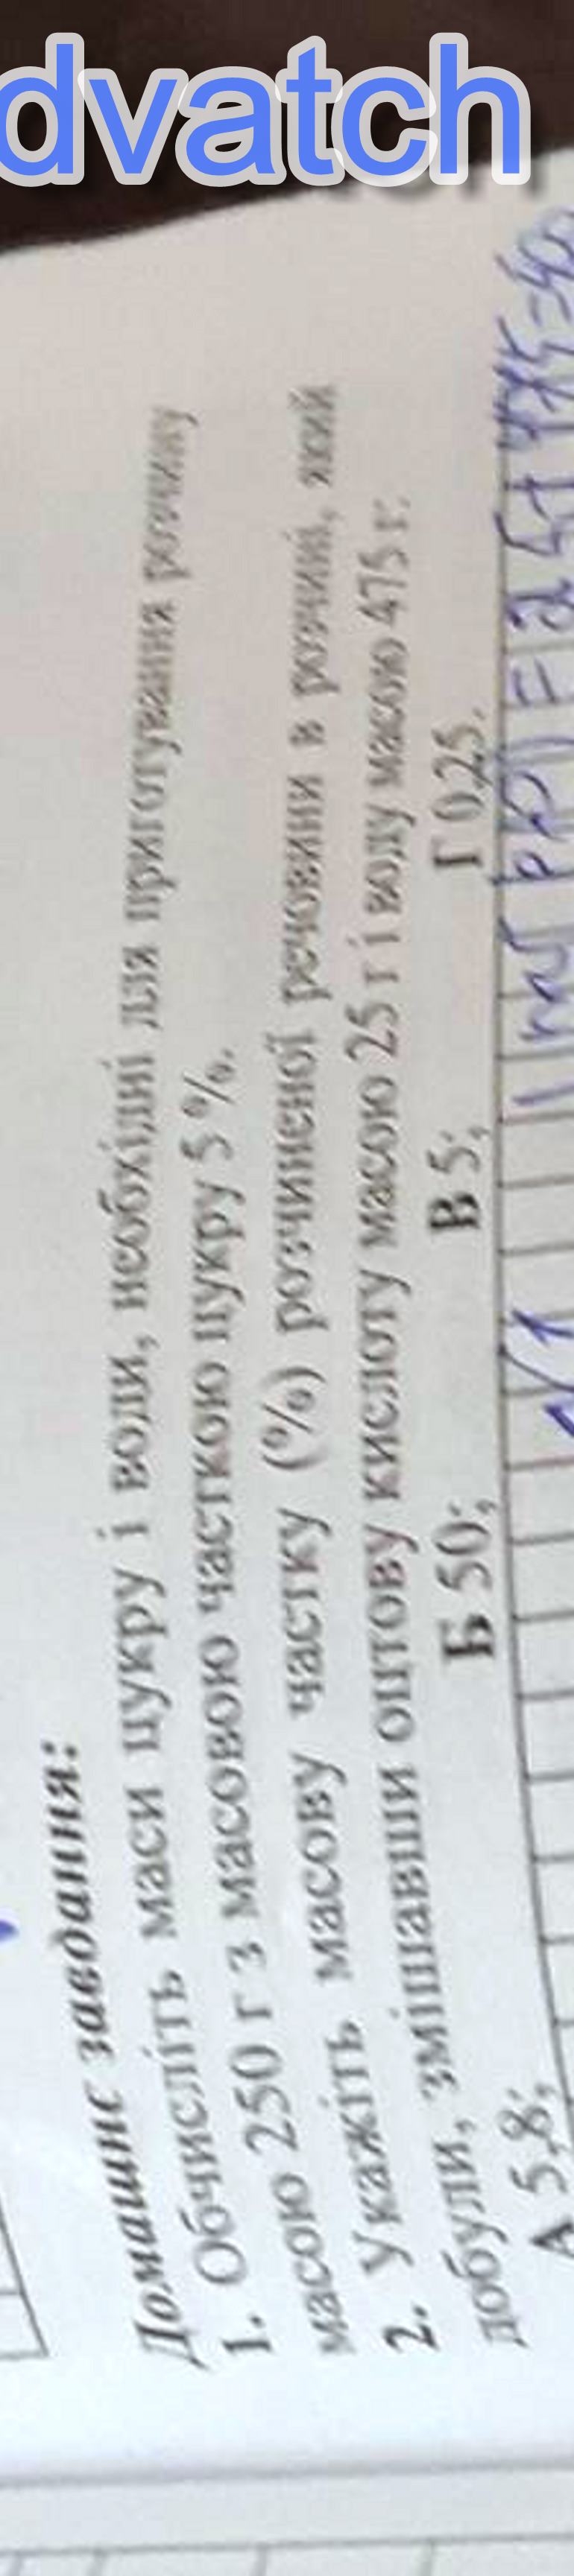 dvatch
Домашнє завдання:
1. Обчисліть маси цукру і води, необхідні для приготування розчину
масою 250 г з масовою часткою цукру 5 %.
2. Укажіть масову частку (%) розчиненої речовини в розчині, який
добули, змішавши оцтову кислоту масою 25 г і воду масою 475 г.
А 5,8; Б 50; В 5; Г 0,25.